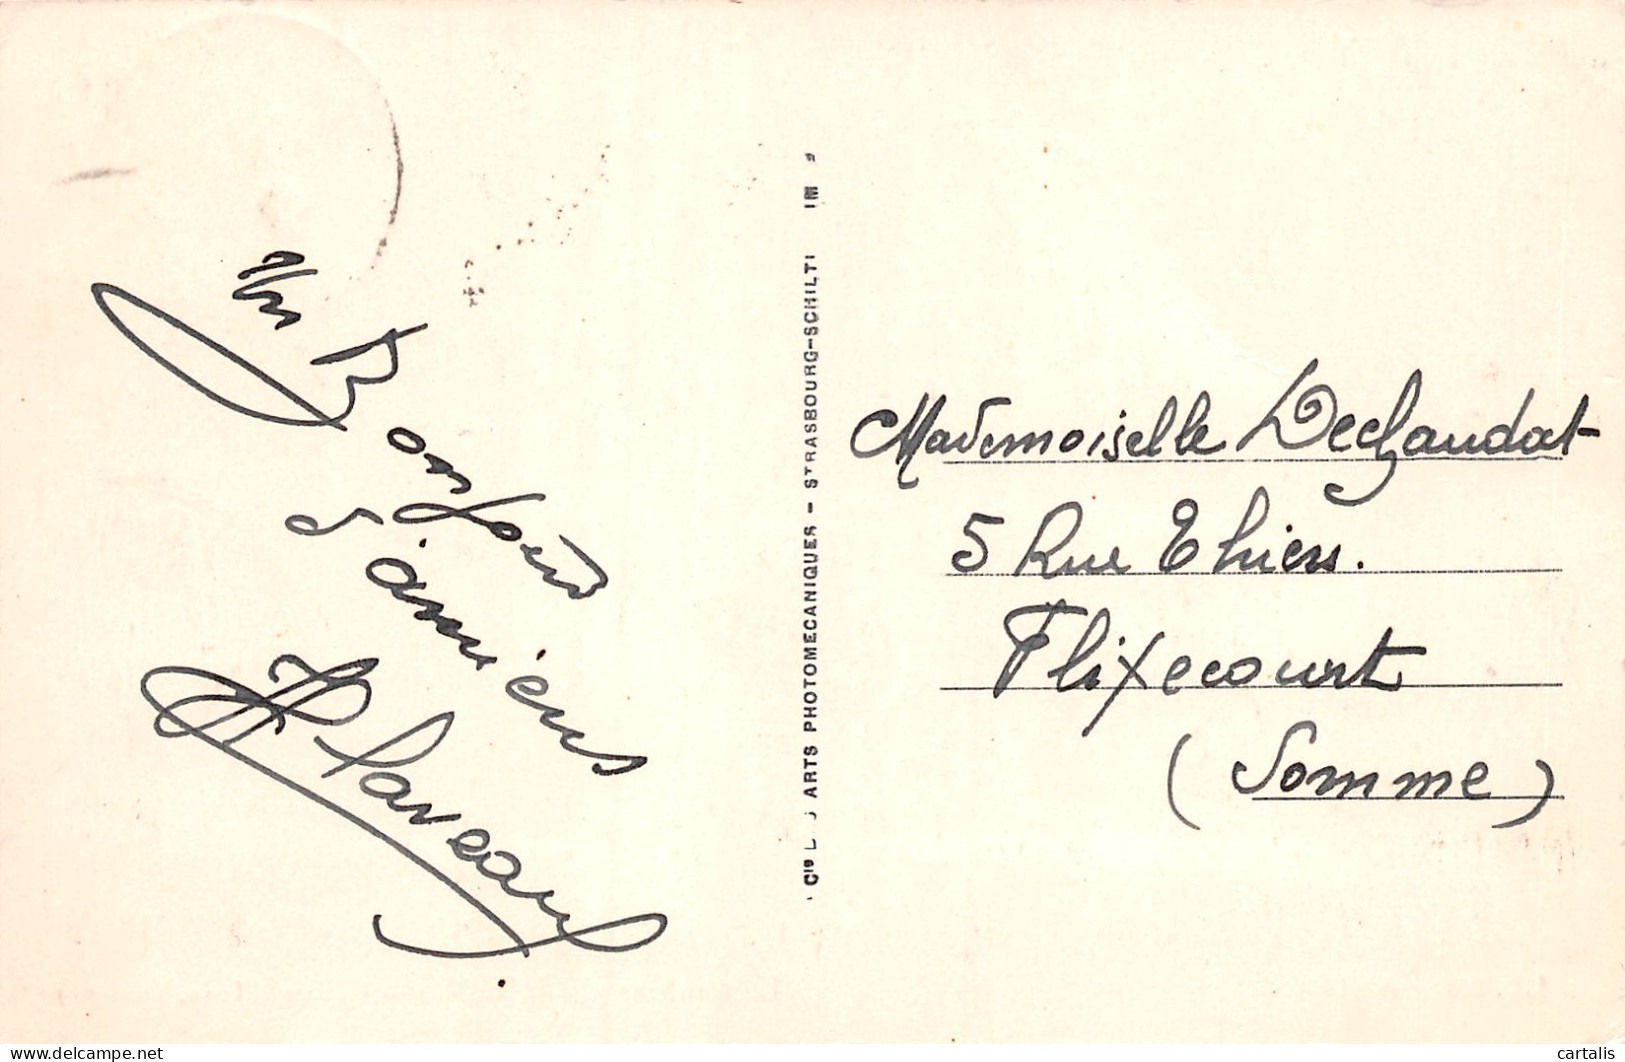 Un Bonjour
d'amiens
Claveau
Cie DES ARTS PHOTOMECANIQUES - STRASBOURG-SCHILTI
Mademoiselle Dechaudat
5 Rue Thiers.
Flixecourt
(Somme)
delcampe.net
cartalis